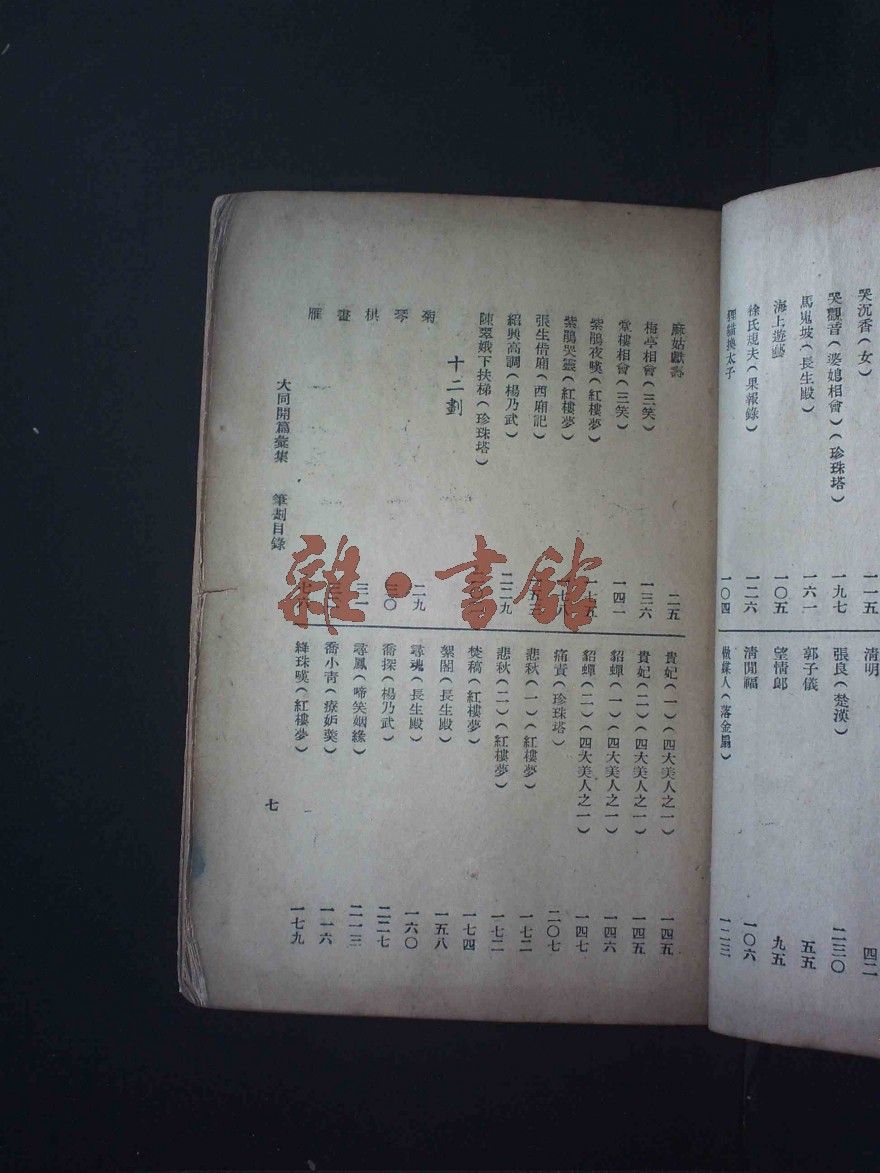 哭沉香(女) 一一五
哭觀音(婆媳相會)(珍珠塔) 一九七
馬嵬坡(長生殿) 一六一
海上遊藝 一〇五
徐氏規夫(果報錄) 一二六
狸貓換太子 一〇四
清明 四二
張良(楚漢) 二三〇
郭子儀 五五
望情郎 九五
清閒福 一〇六
做媒人(落金扇) 一二三
麻姑獻壽 二五
梅亭相會(三笑) 一三六
堂樓相會(三笑) 一四二
紫鵑夜嘆(紅樓夢) 一七五
紫鵑哭靈(紅樓夢)
張生借廂(西廂記)
紹興高調(楊乃武) 二二九
陳翠娥下扶梯(珍珠塔)
十二劃
菊 二九
琴 三〇
棋 三一
畫
雁 七六
貴妃(一)(四大美人之一) 一四五
貴妃(二)(四大美人之一) 一四五
貂蟬(一)(四大美人之一) 一四六
貂蟬(二)(四大美人之一) 一四七
痛責(珍珠塔) 二〇七
悲秋(一)(紅樓夢) 一七二
悲秋(二)(紅樓夢) 一七二
焚稿(紅樓夢) 一七四
絮閣(長生殿) 一五八
尋魂(長生殿) 一六〇
喬探(楊乃武) 二二七
尋鳳(啼笑姻緣) 二一三
喬小青(療妬羹) 一一六
絳珠嘆(紅樓夢) 一七九
大同開篇彙集 筆劃目錄
七
雜·書館